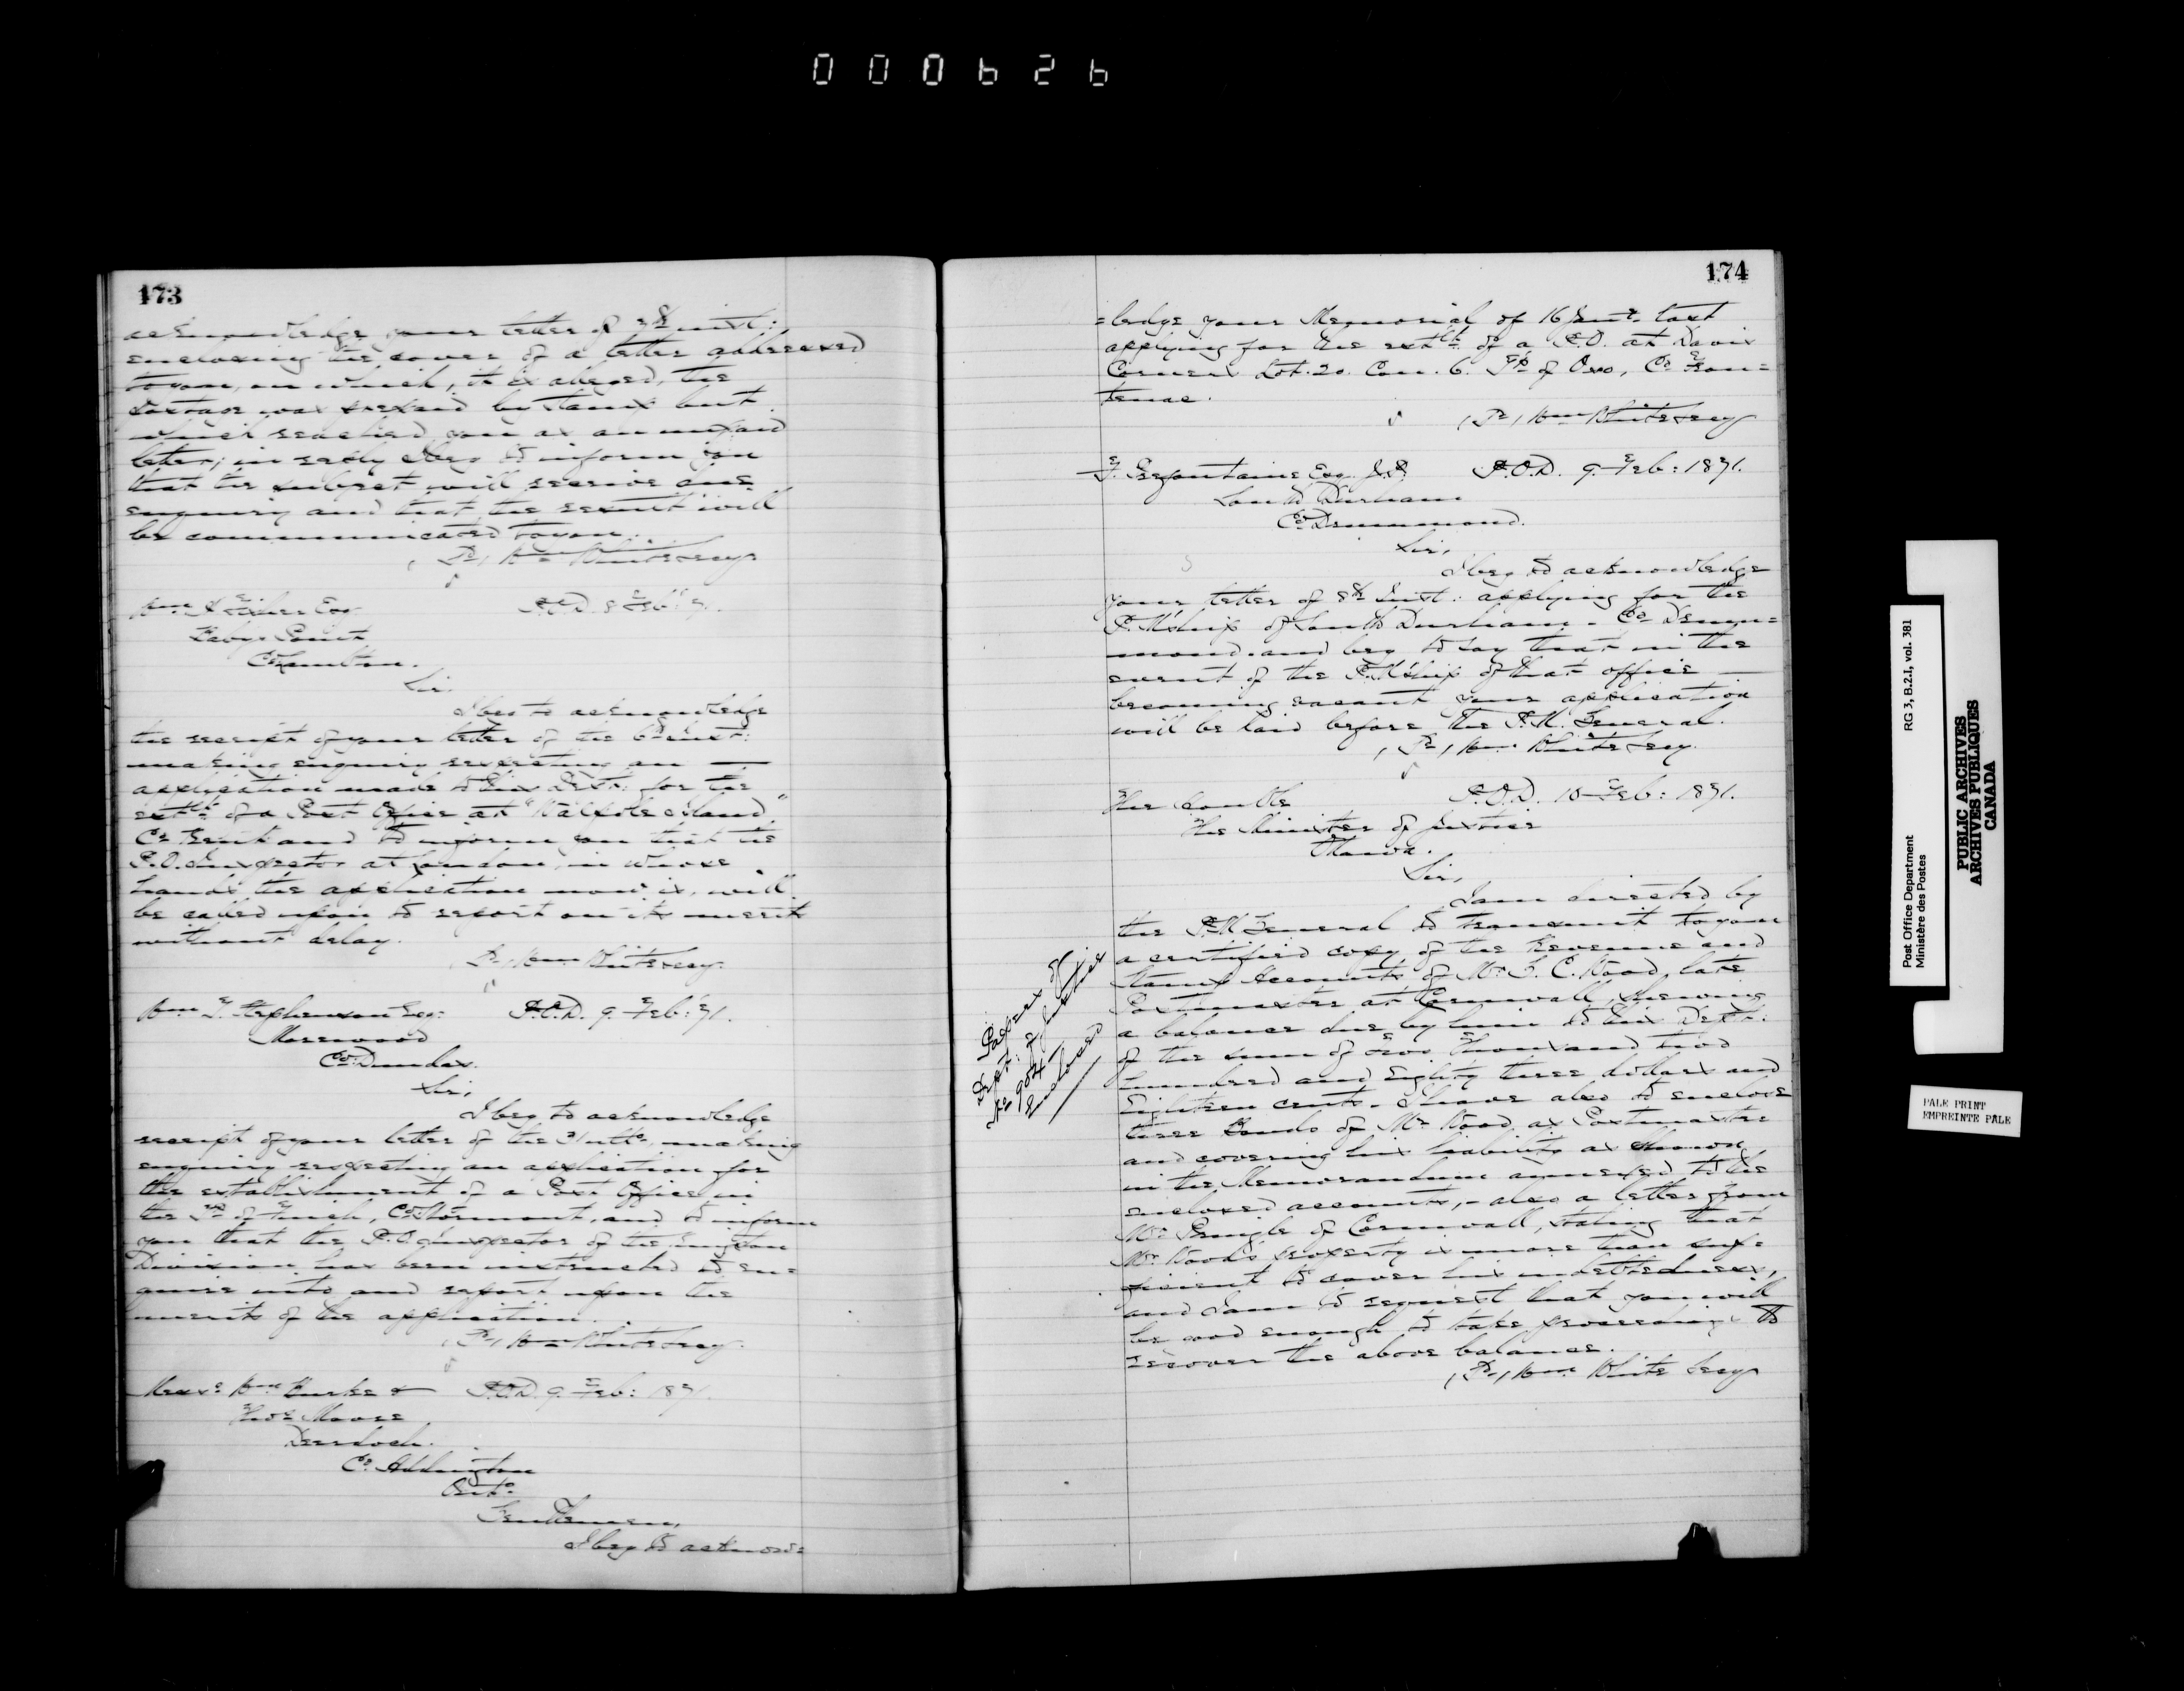 000626
173
acknowledge your letter of 7th inst:
enclosing the cover of a letter addressed
to you, on which, it is alleged, the
postage was prepaid by stamp but
which reached you as an unpaid
letter; in reply I beg to inform you
that the subject will receive due
enquiry and that the result will
be communicated to you.
(Sd) Wm White Secy
Wm Fisher Esq
P.O.D. 8 Feb: 71.
Point
Co Lambton.
Sir,
I beg to acknowledge
the receipt of your letter of the 6th inst:
making enquiry respecting an
application made to this Dept: for the
estt of a Post Office at "Walpole Island,"
Co Kent and to inform you that the
P.O. Inspector at London, in whose
hands the application now is, will
be called upon to report on its merits
without delay.
(Sd) Wm White Secy.
Wm Stephenson Esq:
P.O.D. 9 Feb: 71.
Morewood
Co: Dundas.
Sir,
I beg to acknowledge
receipt of your letter of the 31 ulto, making
enquiry respecting an application for
the establishment of a Post Office in
the Tp of Finch, Co: Stormont, and to inform
you that the P.O. Inspector of the Kingston
Division has been instructed to en=
quire into and report upon the
merits of the application.
(Sd) Wm White Secy.
Messrs Wm Burke &
P.O.D. 9 Feb: 1871.
Thos Moore
Co. Addington
Onto
Gentlemen,
I beg to acknow=
174
=ledge your Memorial of 16 Jany. last
applying for the estt of a P.O. at Davis
Corners Lot. 20. Con. 6. Tp of Oso, Co Fron=
tenac.
(Sd) Wm White Secy
Prefontaine Esq. J.P.
P.O.D. 9 Feb: 1871.
South Durham
Co Drummond.
Sir,
I beg to acknowledge
your letter of 8th Inst: applying for the
P.M'ship of South Durham - Co Drum=
mond. and beg to say that in the
event of the P.M'ship of that office
becoming vacant your application
will be laid before the P.M. General.
(Sd) Wm White Secy.
The Honble
P.O.D. 10 Feb: 1871.
The Minister of Justice
Ottawa.
Sir,
I am directed by
the P.M General to transmit to you
a certified copy of the Revenue and
Stamp Accounts of Mr. C. Wood, late
Postmaster at Cornwall, shewing
a balance due by him to this Dept:
of the sum of Two Thousand two
hundred and Eighty three dollars and
Eighteen cents. I have also to enclose
three Bonds of Mr Wood as Postmaster
and covering his liability as shown
in the Memorandum annexed to the
enclosed accounts, - also a letter from
Mr Pringle of Cornwall, stating that
Mr Wood's property is more than suf=
ficient to cover his indebtedness,
and I am to request that you will
be good enough to take proceedings to
recover the above balance.
(Sd) Wm White Secy
Papers of
Dept: of Justice
No 904
Enclosed
Post Office Department RG 3, B.2.I, vol. 381
Ministère des Postes
PUBLIC ARCHIVES
ARCHIVES PUBLIQUES
CANADA
PALE PRINT
EMPREINTE PALE